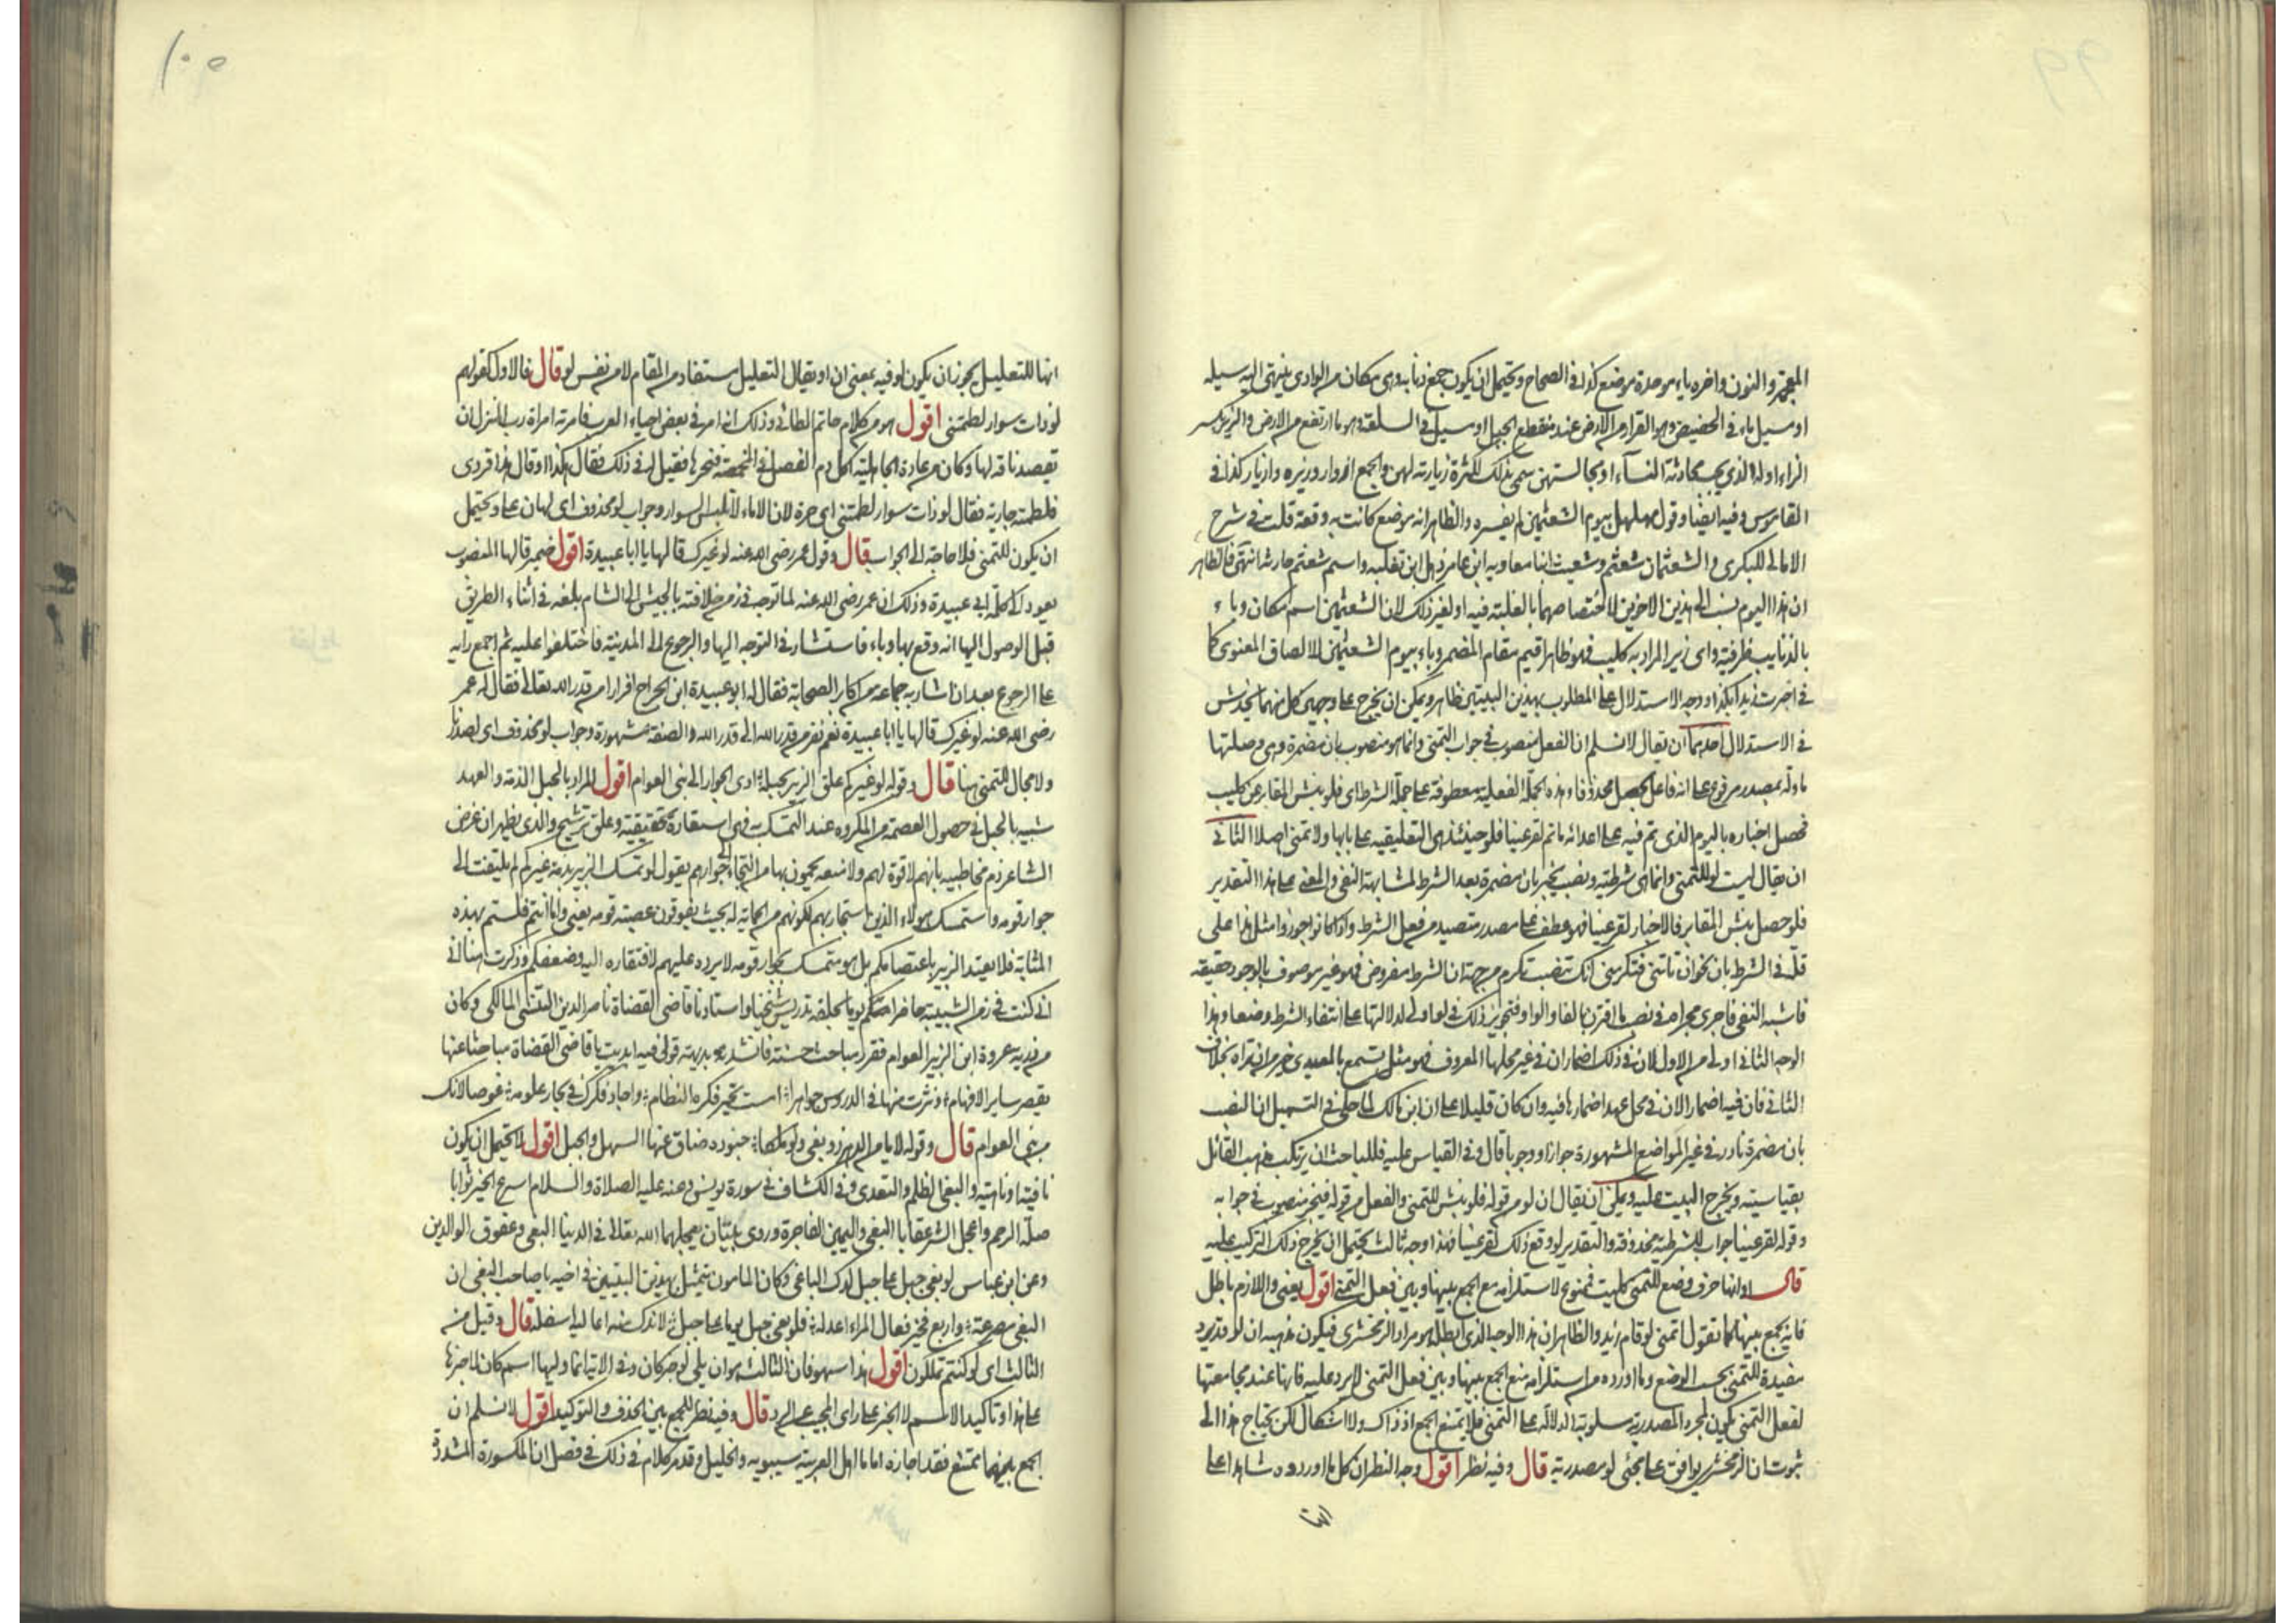 المعجمة والنون واخره باء موحدة موضع كذا في الصحاح ويحتمل ان يكون جمع ذنابه وهى مكان من الوادي ينتهى اليه سيله
او سيل ماء في الحضيض وهو القرار من الارض عند منقطع الجبل او سيل في السلقه وهو ما ارتفع من الارض والزير بكسر
الزاء اوله الذي يحب محادثة النسآء او مجالستهن سمى بذلك لكثرة زيارته لهن والجمع ازوار وزيره وازيار كذا في
القاموس وفيه ايضا وقول مهلهل بيوم الشعثمين لم يفسره والظاهر انه موضع كانت به وقعة قلت في شرح
الامالى للبكرى والشعثمان شعثم وشعيث ابنا معاويه ابن عامر ذهل ابن تغلبه واسم شعثم حارثه انتهى فالظاهر
ان هذا اليوم نسب الى هذين الاخوين لاختصاصهما بالغلبة فيه او لغير ذلك لان الشعثمين اسم مكان وباء
بالذنايب ظرفية واى زير المراد به كليب فهو ظاهر اقيم مقام المضمر وباء بيوم الشعثمين للالصاق المعنوى كما
في اخبرت زيدا بكذا ووجه الاستدلال على المطلوب بهذين البيتين ظاهر ويمكن ان يخرج على وجهين كل منهما يخدش
في الاستدلال احدهما ان يقال لا نسلم ان الفعل منصوب في جواب التمنى وانما هو منصوب بان مضمرة وهى وصلتها
ماولة بمصدر مرفوع على انه فاعل لحصل محذوفا وهذه الجملة الفعلية معطوفة على جملة الشرط اى فلو نبش المقابر عن كليب
فحصل اخباره باليوم الذى تم فيه على اعدائه ما تم لقر عينا فلو حينئذ هى التعليقيه على بابها ولا تمنى اصلا الثانى
ان يقال ليست لو للتمنى وانما هى شرطية ونصب يخبر بان مضمرة بعد الشرط لمشابهة النفى والمعنى على هذا التقدير
فلو حصل نبش المقابر فالاخبار لقر عينا فهو عطف على مصدر متصيد من فعل الشرط واذا كانوا جوزوا مثل هذا على
قلة في الشرط بان نحو ان تاتنى فتكرمنى آتك بنصب تكرم من جهة ان الشرط مفروض فهو غير موصوف بالوجود حقيقه
فاشبه النفى فاجرى مجراه في نصب ما اقترن بالفا والواو فتجويز ذلك في لو اولى لدلالتها على انتفاء الشرط وضعا وهذا
الوجه الثانى اولى من الاول لان في ذلك اضمار ان في غير محلها المعروف فهو مثل تسمع بالمعيدى خير من ان تراه بخلاف
الثانى فان فيه اضمار الان في محل عهد اضمارها فيه وان كان قليلا على ان ابن مالك لما حكى في التسهيل ان النصب
بان مضمرة نادر في غير المواضع المشهورة جوازا ووجوبا قال وفى القياس عليه فللباحث ان يرتكب مذهب القائل
بقياسيته ويخرج البيت عليه ويمكن ان يقال ان لو من قوله فلو نبش للتمنى والفعل من قوله فيخبر منصوب في جوابه
وقوله لقر عينا جواب لشرطية محذوفة والتقدير لو وقع ذلك لقر عينا فهذا وجه ثالث يحتمل ان يخرج ذلك التركيب عليه
قال او انها حرف وضع للتمنى كليت فممنوع لاستلزامه منع الجمع بينها وبين فعل التمنى اقول يعنى واللازم باطل
فانه يجمع بينهما كما تقول اتمنى لو قام زيد والظاهر ان هذا الوجه الذى ابطله هو مراد الزمخشرى فيكون مذهبه ان لو قد ترد
مفيدة للتمنى بحسب الوضع وما اورده من استلزامه منع الجمع بينها وبين فعل التمنى لا يرد عليه فانها عند مجامعتها
لفعل التمنى يكون لمجرد المصدرية مسلوبة الدلالة على التمنى فلا يمتنع الجمع اذ ذاك ولا اشكال لكن يحتاج هذا الى
ثبوت ان الزمخشرى يوافق على مجئى لو مصدرية قال وفيه نظر اقول وجه النظر ان كل ما اورده شاهدا على
انها للتعليل يجوز ان يكون لو فيه بمعنى ان او يقال التعليل مستفاد من المقام لا من نفس لو قال فالاول كقولهم
لو ذات سوار لطمتنى اقول هو من كلام حاتم الطائى وذلك انه مر في بعض احياء العرب فامرته امراة رب المنزل ان
يفصد ناقه لها وكان من عادة الجاهلية اكل دم الفصد في المخمصة فنحرها فقيل له في ذلك فقال هكذا وقال هذا قردى
فلطمته جارية فقال لو ذات سوار لطمتنى اى حرة لان الاماء لا تلبس السوار وجواب لو محذوف اى لهان على ويحتمل
ان يكون للتمنى فلا حاجة الى الجواب قال وقول عمر رضى الله عنه لو غيرك قالها يا ابا عبيدة اقول ضمير قالها المنصوب
يعود الى كلمة ابى عبيدة وذلك ان عمر رضى الله عنه لما توجه في زمن خلافته بالجيش الى الشام بلغه في اثناء الطريق
قبل الوصول اليها انه وقع بها وباء فاستشار في التوجه اليها والرجوع الى المدينة فاختلفوا عليه ثم اجمع رايه
على الرجوع بعد ان اشار به جماعة من اكابر الصحابة فقال له ابو عبيدة ابن الجراح افرارا من قدر الله تعالى فقال له عمر
رضى الله عنه لو غيرك قالها يا ابا عبيدة نعم نفر من قدر الله الى قدر الله والصفة مشهورة وجواب لو محذوف اى لصدر
ولا مجال للتمنى هنا قال وقوله لو غيركم علق الزبير بحبله ادى الجوار الى بنى العوام اقول المراد بالحبل الذمة والعهد
شبيه بالحبل في حصول العصمة من المكروه عند التمسك به فهى استعارة تحقيقية وعلق ترشيح والذى يظهر ان غرض
الشاعر ذم مخاطبيه بانهم لا قوة لهم ولا منعه يحمون بها من التجاء الى جوارهم يقول لو تمسك الزبير بذمة غيركم لم يلتفت الى
جوار قومه واستمسك بهولاء الذين استجار بهم لكونهم من الحماية له بحيث يفوقون عصبة قومه يعنى واما انتم فلستم بهذه
المثابة فلا يعتد الزبير باعتصامكم بل هو متمسك بجوار قومه لا يرده عليهم لافتقاره اليه وضعفكم وذكرت هنا انى
انى كنت في زمن الشبيبة حاضرا معكم يوما بحلقة تدريس شيخنا واستاذنا قاضى القضاة ناصر الدين التنسى المالكى وكان
من ذرية عروة ابن الزبير العوام فقرر مباحث حسنة فانشد بديهة قولى فيه ابديت يا قاضى القضاة مباحثا عنها
يقصر ساير الافهام ونثرت منها في الدروس جواهرا است تحير فكره النظام واجاد فكرك في بحار علومه غوصا لانك
من بنى العوام قال وقوله لا يامن الدهر ذو بغى ولو ملكا جنوده ضاق عنها السهل والجبل اقول لا تحتمل ان يكون
نافية او ناهية والبغى الظلم والتعدى وفى الكشاف في سورة يونس وعنه عليه الصلاة والسلام اسرع الخير ثوابا
صلة الرحم واعجل الشر عقابا البغى واليمين الفاجرة وروى ثنتان يعجلهما الله تعالى في الدنيا البغى وعقوق الوالدين
وعن ابن عباس لو بغى جبل على جبل لدك الباغى وكان المامون يتمثل بهذين البيتين في اخيه يا صاحب البغى ان
البغى مصرعة واربع فخير فعال المراء اعدله فلو بغى جبل يوما على جبل لاندك منه اعاليه اسفله قال وقيل من
الثالث اى لو كنتم تملكون اقول هذا سهو فان الثالث هو ان يلى لو خبر كان وفى الاية انما وليها اسم كان لا خبرها
على هذا وتاكيد الاسم لا الخبر على راى المجيب على الرد قال وفيه نظر للجمع بين الحذف والتوكيد اقول لا نسلم ان
الجمع بينهما ممتنع فقد اجازه اماما اهل العربية سيبويه والخليل وقد مر كلام في ذلك في فصل ان المكسورة المشددة